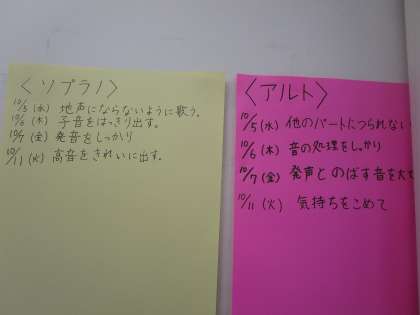 〈ソプラノ〉
10/5(水) 地声にならないように歌う。
10/6(木) 子音をはっきり出す。
10/7(金) 発音をしっかり
10/11(火) 高音をきれいに出す。
〈アルト〉
10/5(水) 他のパートにつられない
10/6(木) 音の処理をしっかり
10/7(金) 発声とのばす音を大
10/11(火) 気持ちをこめて